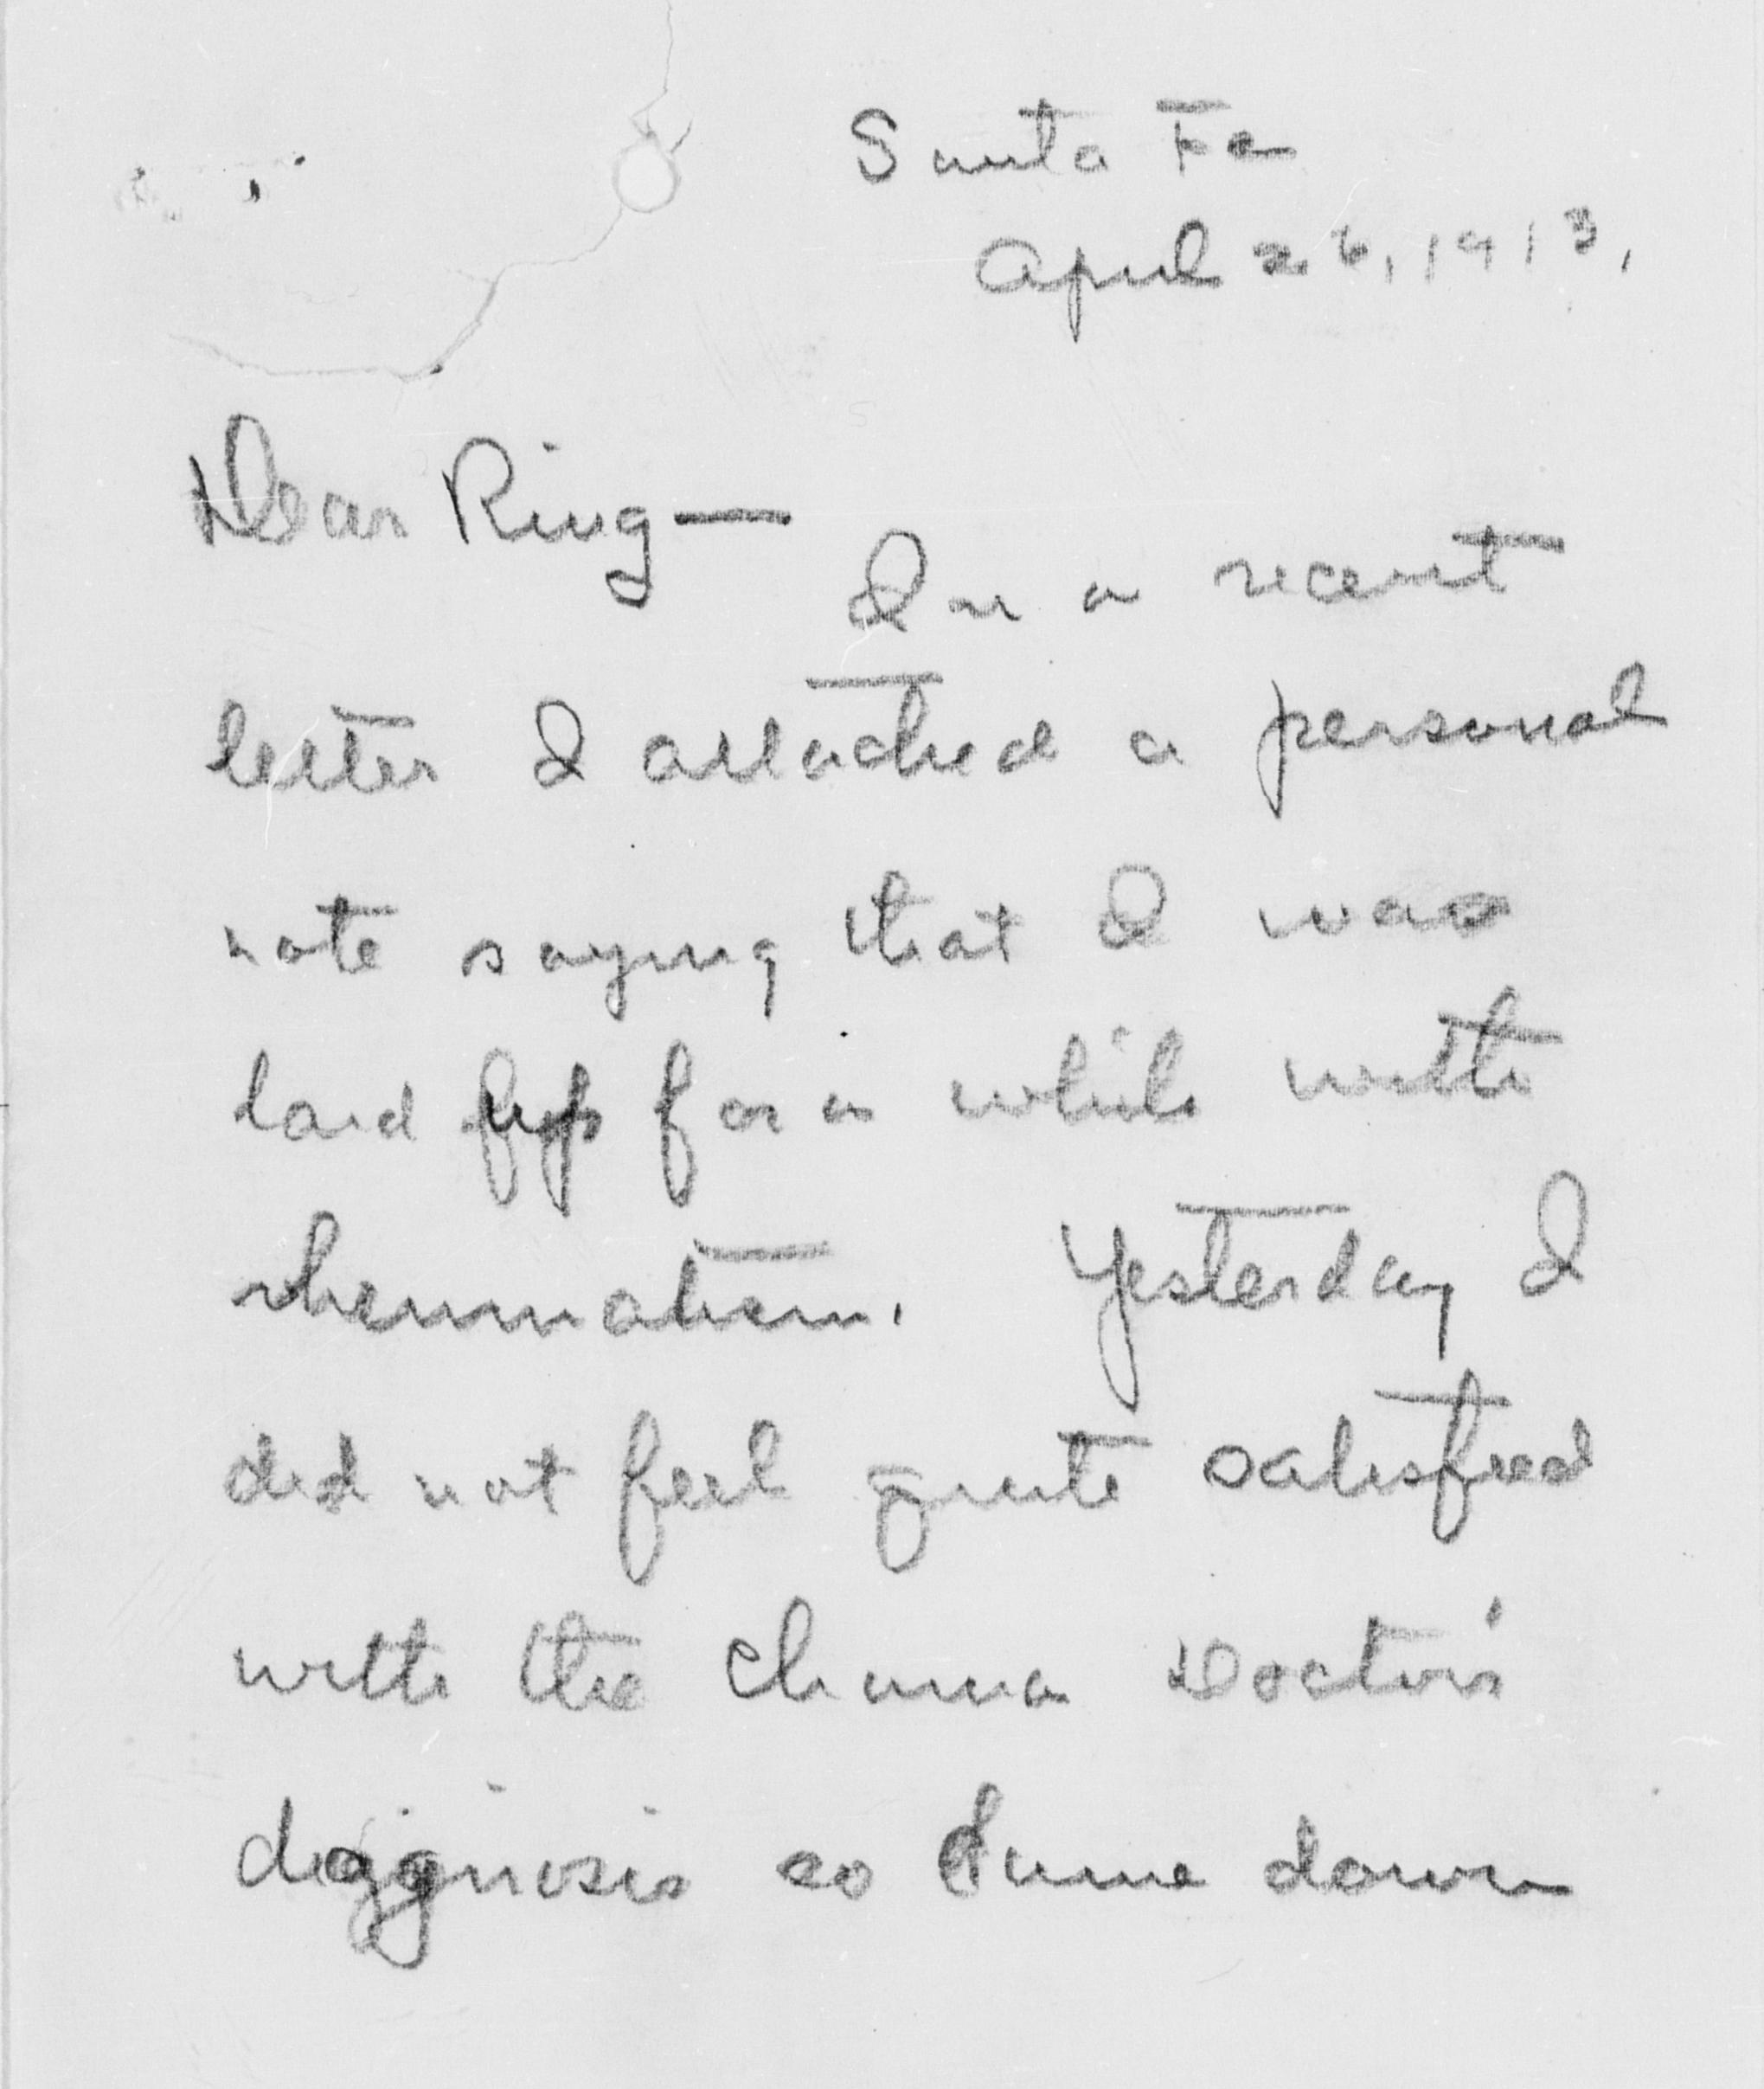 Santa Fe
April 26, 1913.
Dear Ring—
In a recent
letter I attached a personal
note saying that I was
laid up for a while with
rheumatism. Yesterday I
did not feel quite satisfied
with the Chama Doctor's
diagnosis so came down